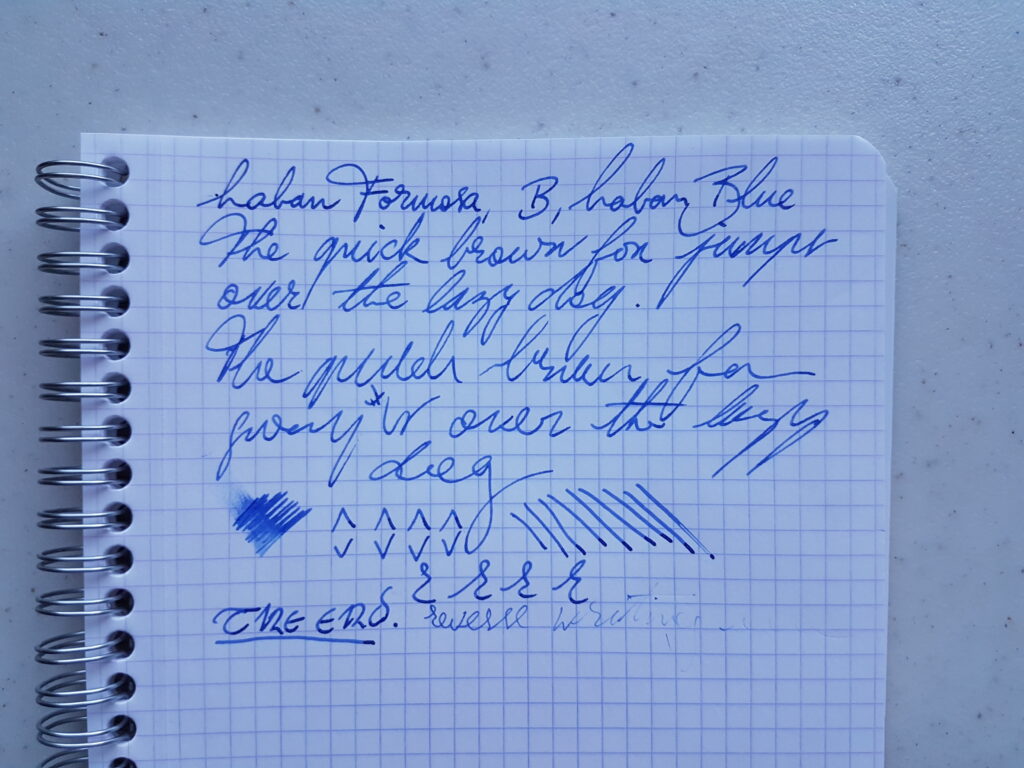 laban Formosa, B, laban Blue
The quick brown fox jumps
over the lazy dog.
The quick brown fox
over the lazy
dog
THE END. reverse writing